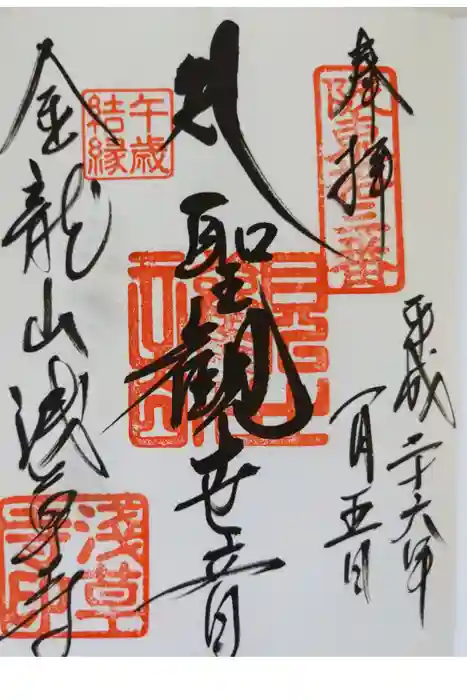 奉拝
阪東拾三番
平成二十六年
一月五日
聖観世音
午歳
結縁
金龍山浅草寺
淺草
寺印